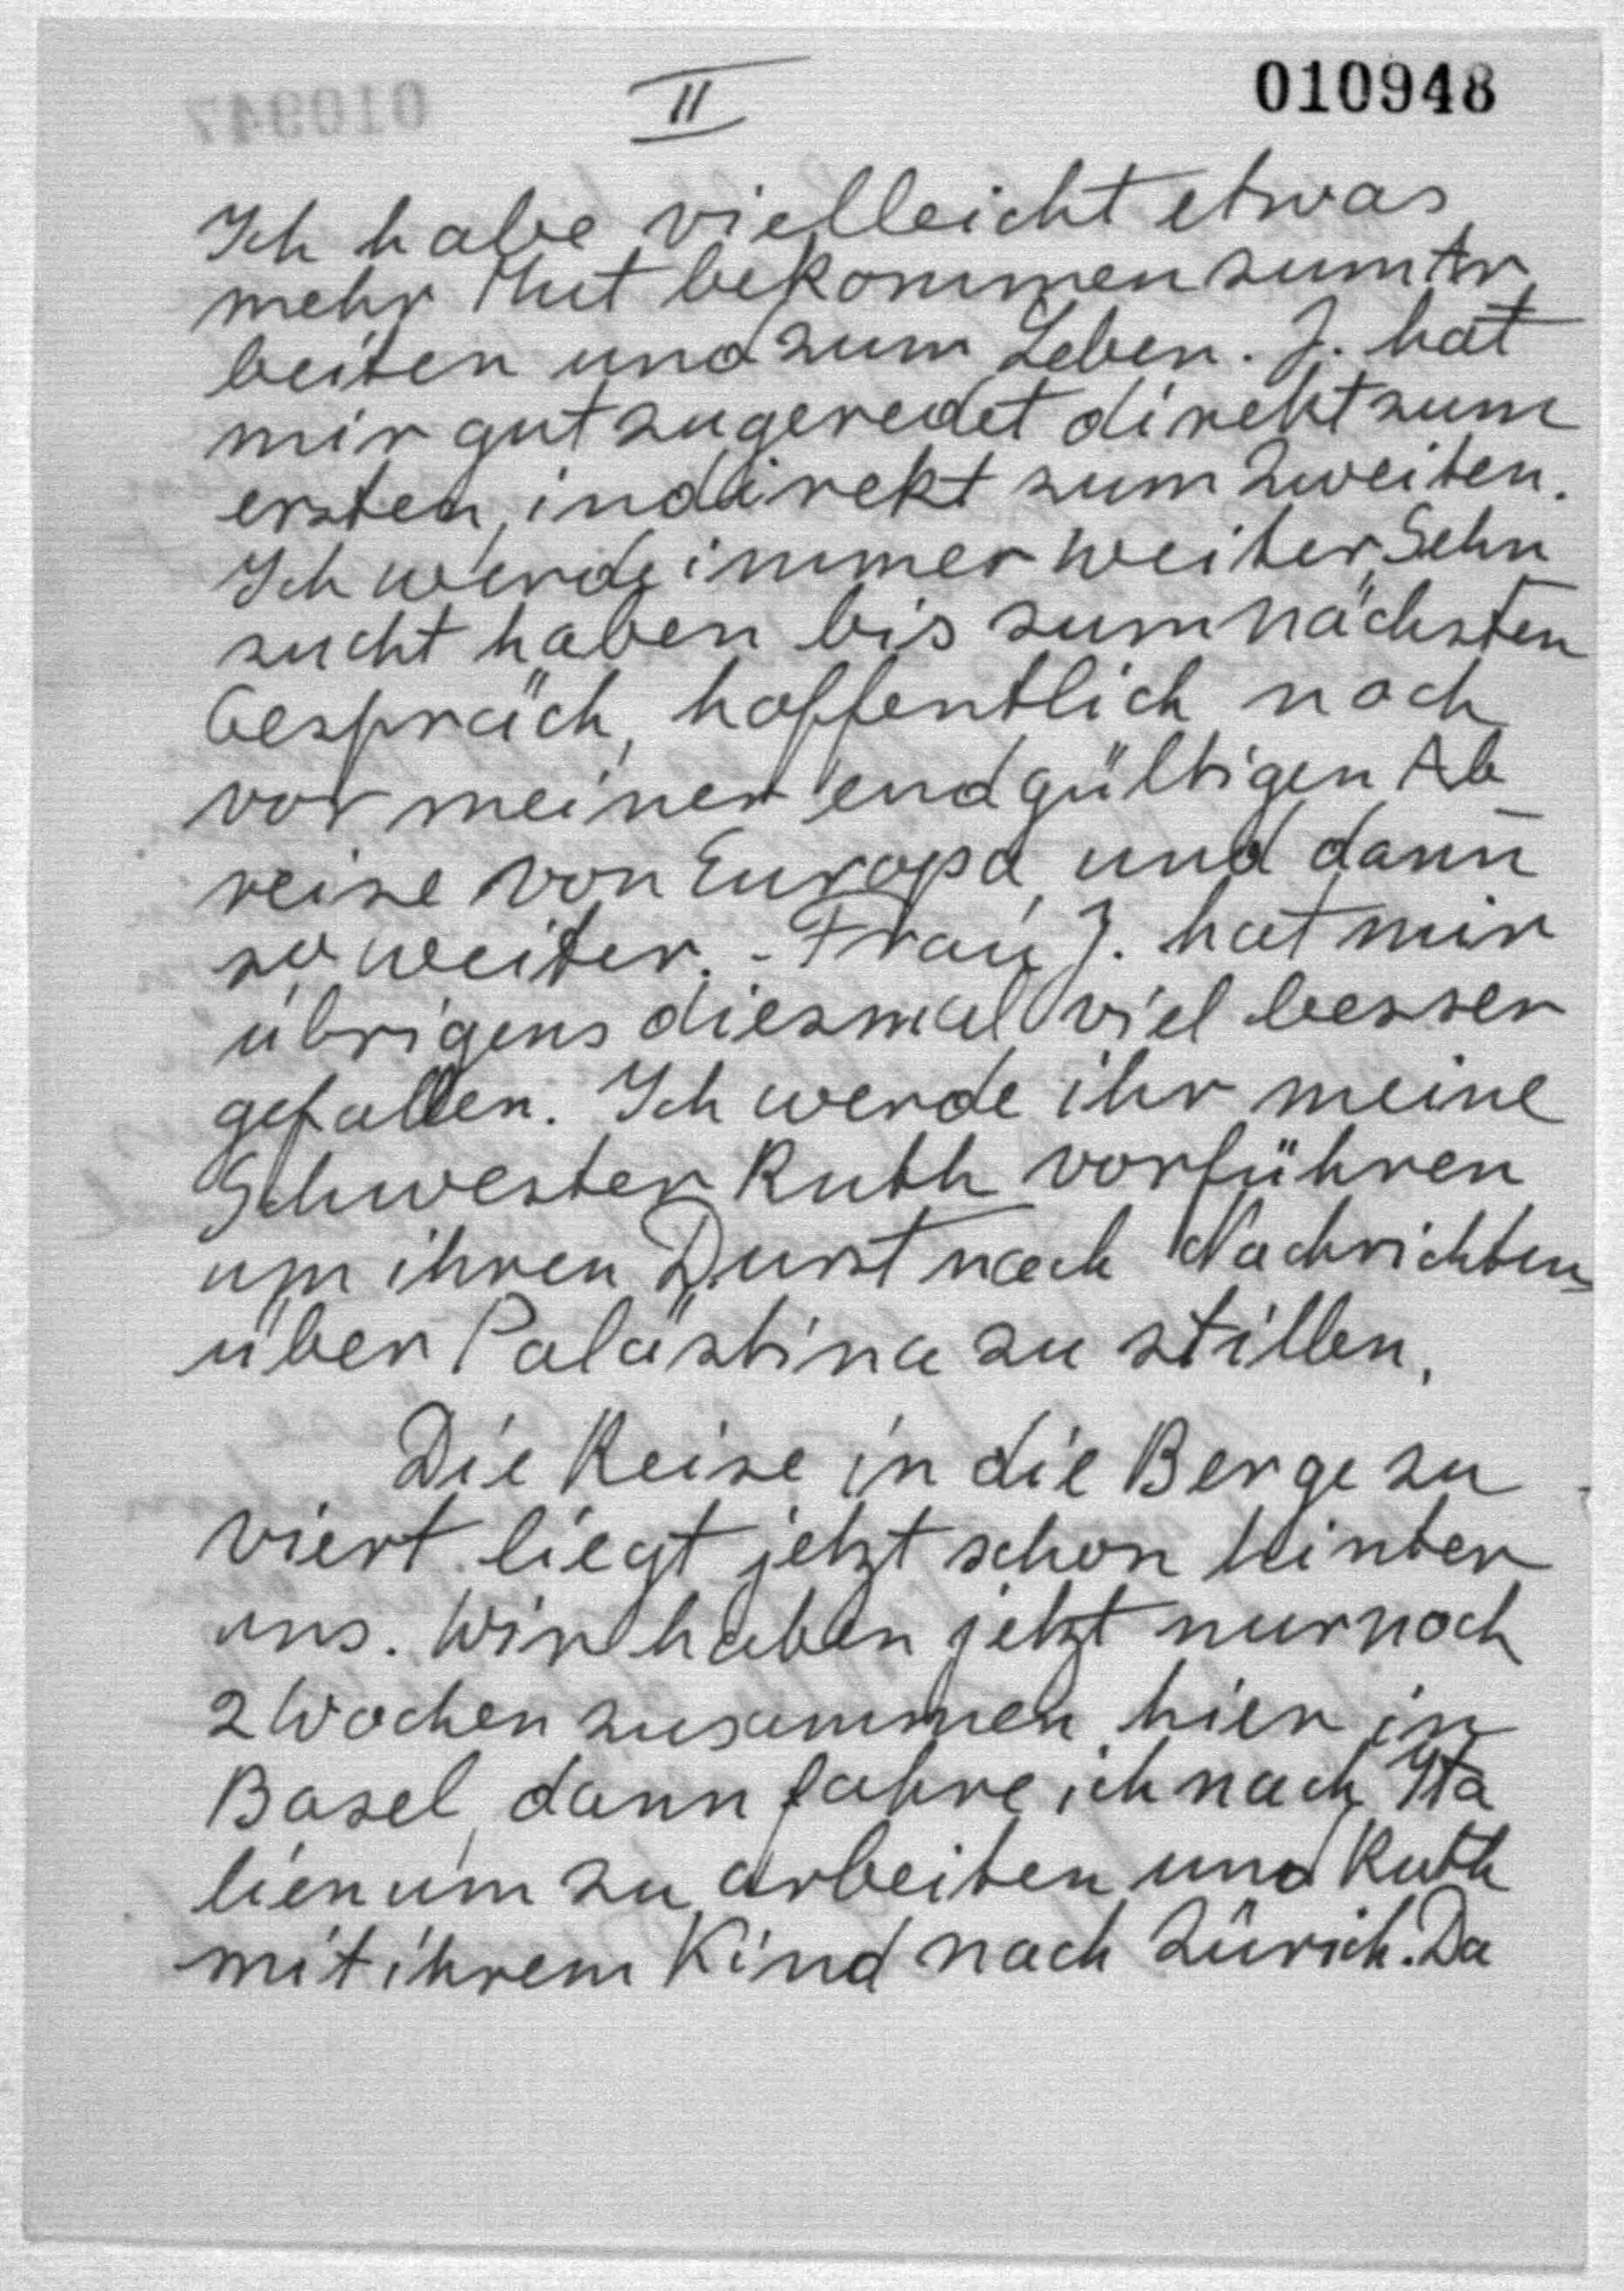 II
010948
Ich habe vielleicht etwas
mehr Mut bekommen zum Ar
beiten und zum Leben. J. hat
mir gut zugeredet direkt zum
ersten, indirekt zum Zweiten.
Ich werde immer weiter Sehn
sucht haben bis zum nächsten
Gespräch, hoffentlich noch
vor meiner endgültigen Ab
reise von Europa, und dann
so weiter. - Frau J. hat mir
übrigens diesmal viel besser
gefallen. Ich werde ihr meine
Schwester Ruth vorführen
um ihren Durst nach Nachrichten
über Palästina zu stillen.
Die Reise in die Berge zu
viert liegt jetzt schon hinter
uns. Wir haben jetzt nur noch
2 Wochen zusammen hier in
Basel, dann fahre ich nach Ita
lien um zu arbeiten und Ruth
mit ihrem Kind nach Zürich. Da